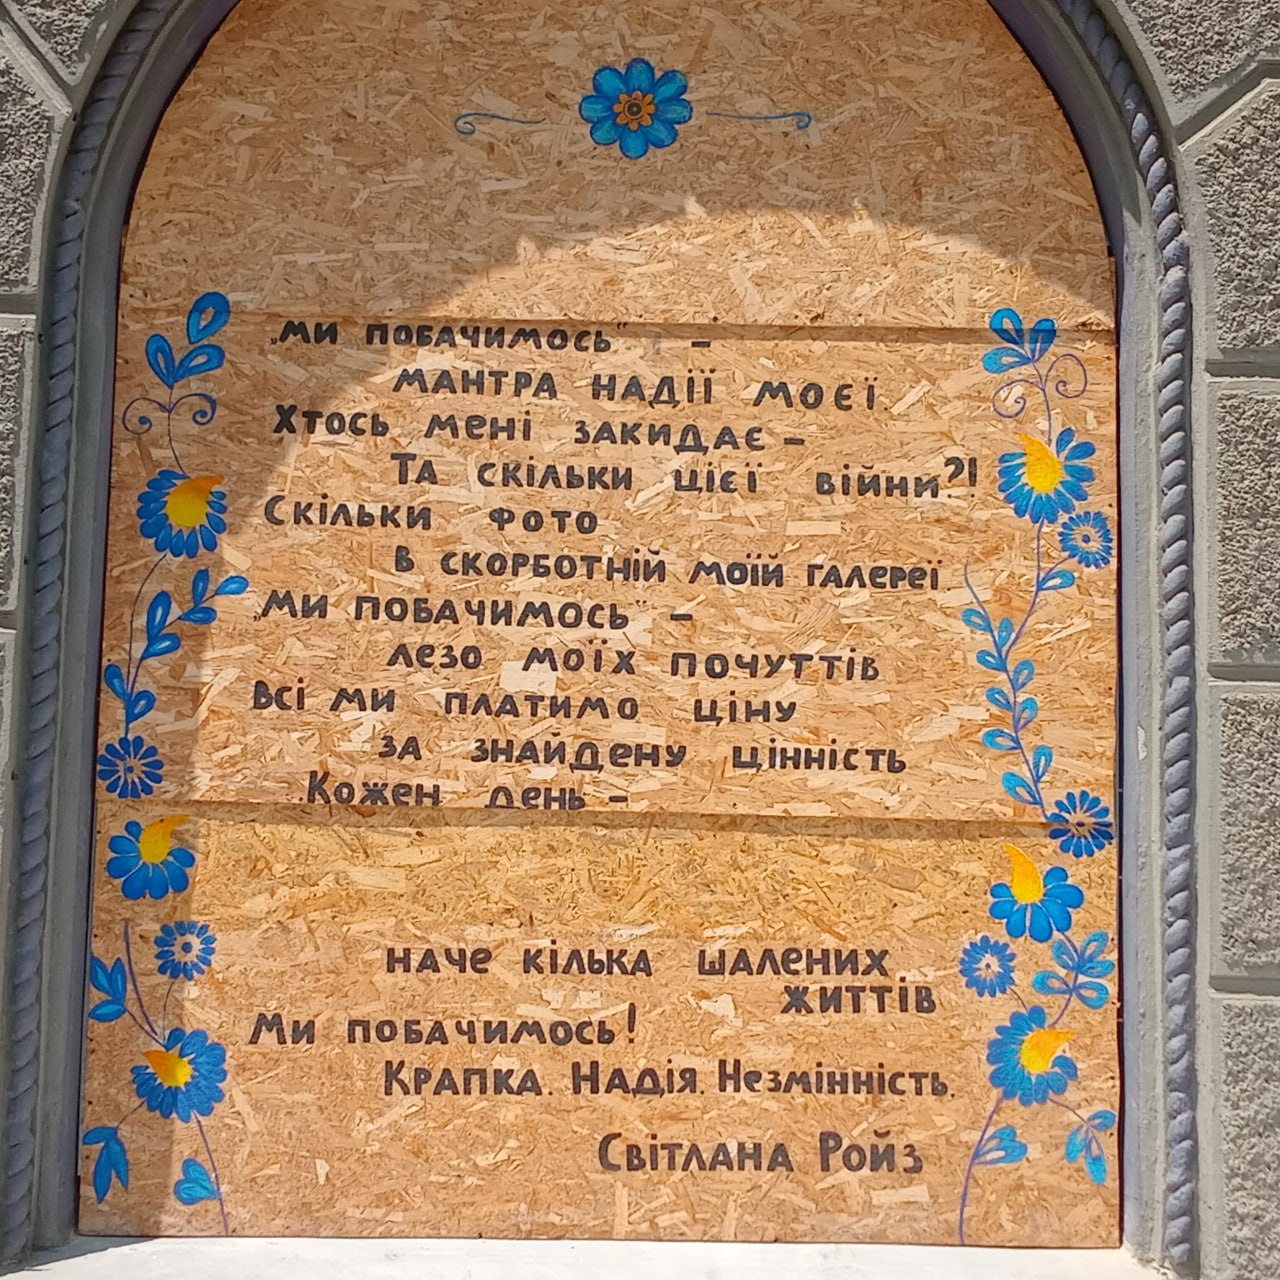 „Ми побачимось" –
мантра надії моєї.
Хтось мені закидає –
Та скільки цієї війни?!
Скільки фото
в скорботній моїй галереї
„Ми побачимось" –
лезо моїх почуттів
Всі ми платимо ціну
за знайдену цінність
Кожен день –
наче кілька шалених
життів
Ми побачимось!
Крапка. Надія. Незмінність.
Світлана Ройз